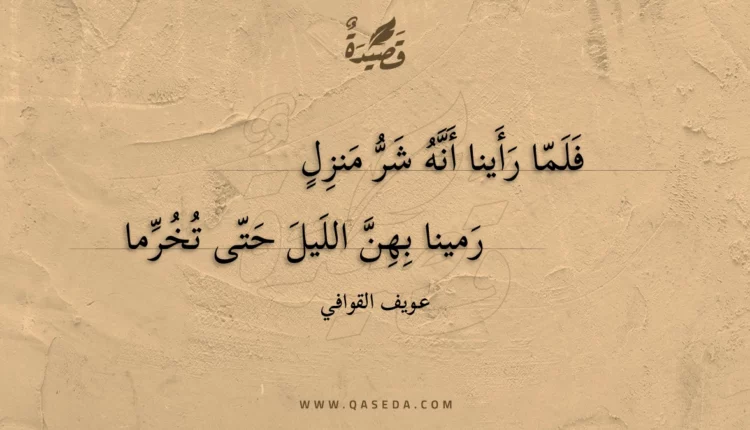 قَصِيدَةٌ
فَلَمّا رَأَينا أَنَّهُ شَرُّ مَنزِلٍ
رَمينا بِهِنَّ اللَيلَ حَتّى تُخُرِّما
عويف القوافي
WWW.QASEDA.COM